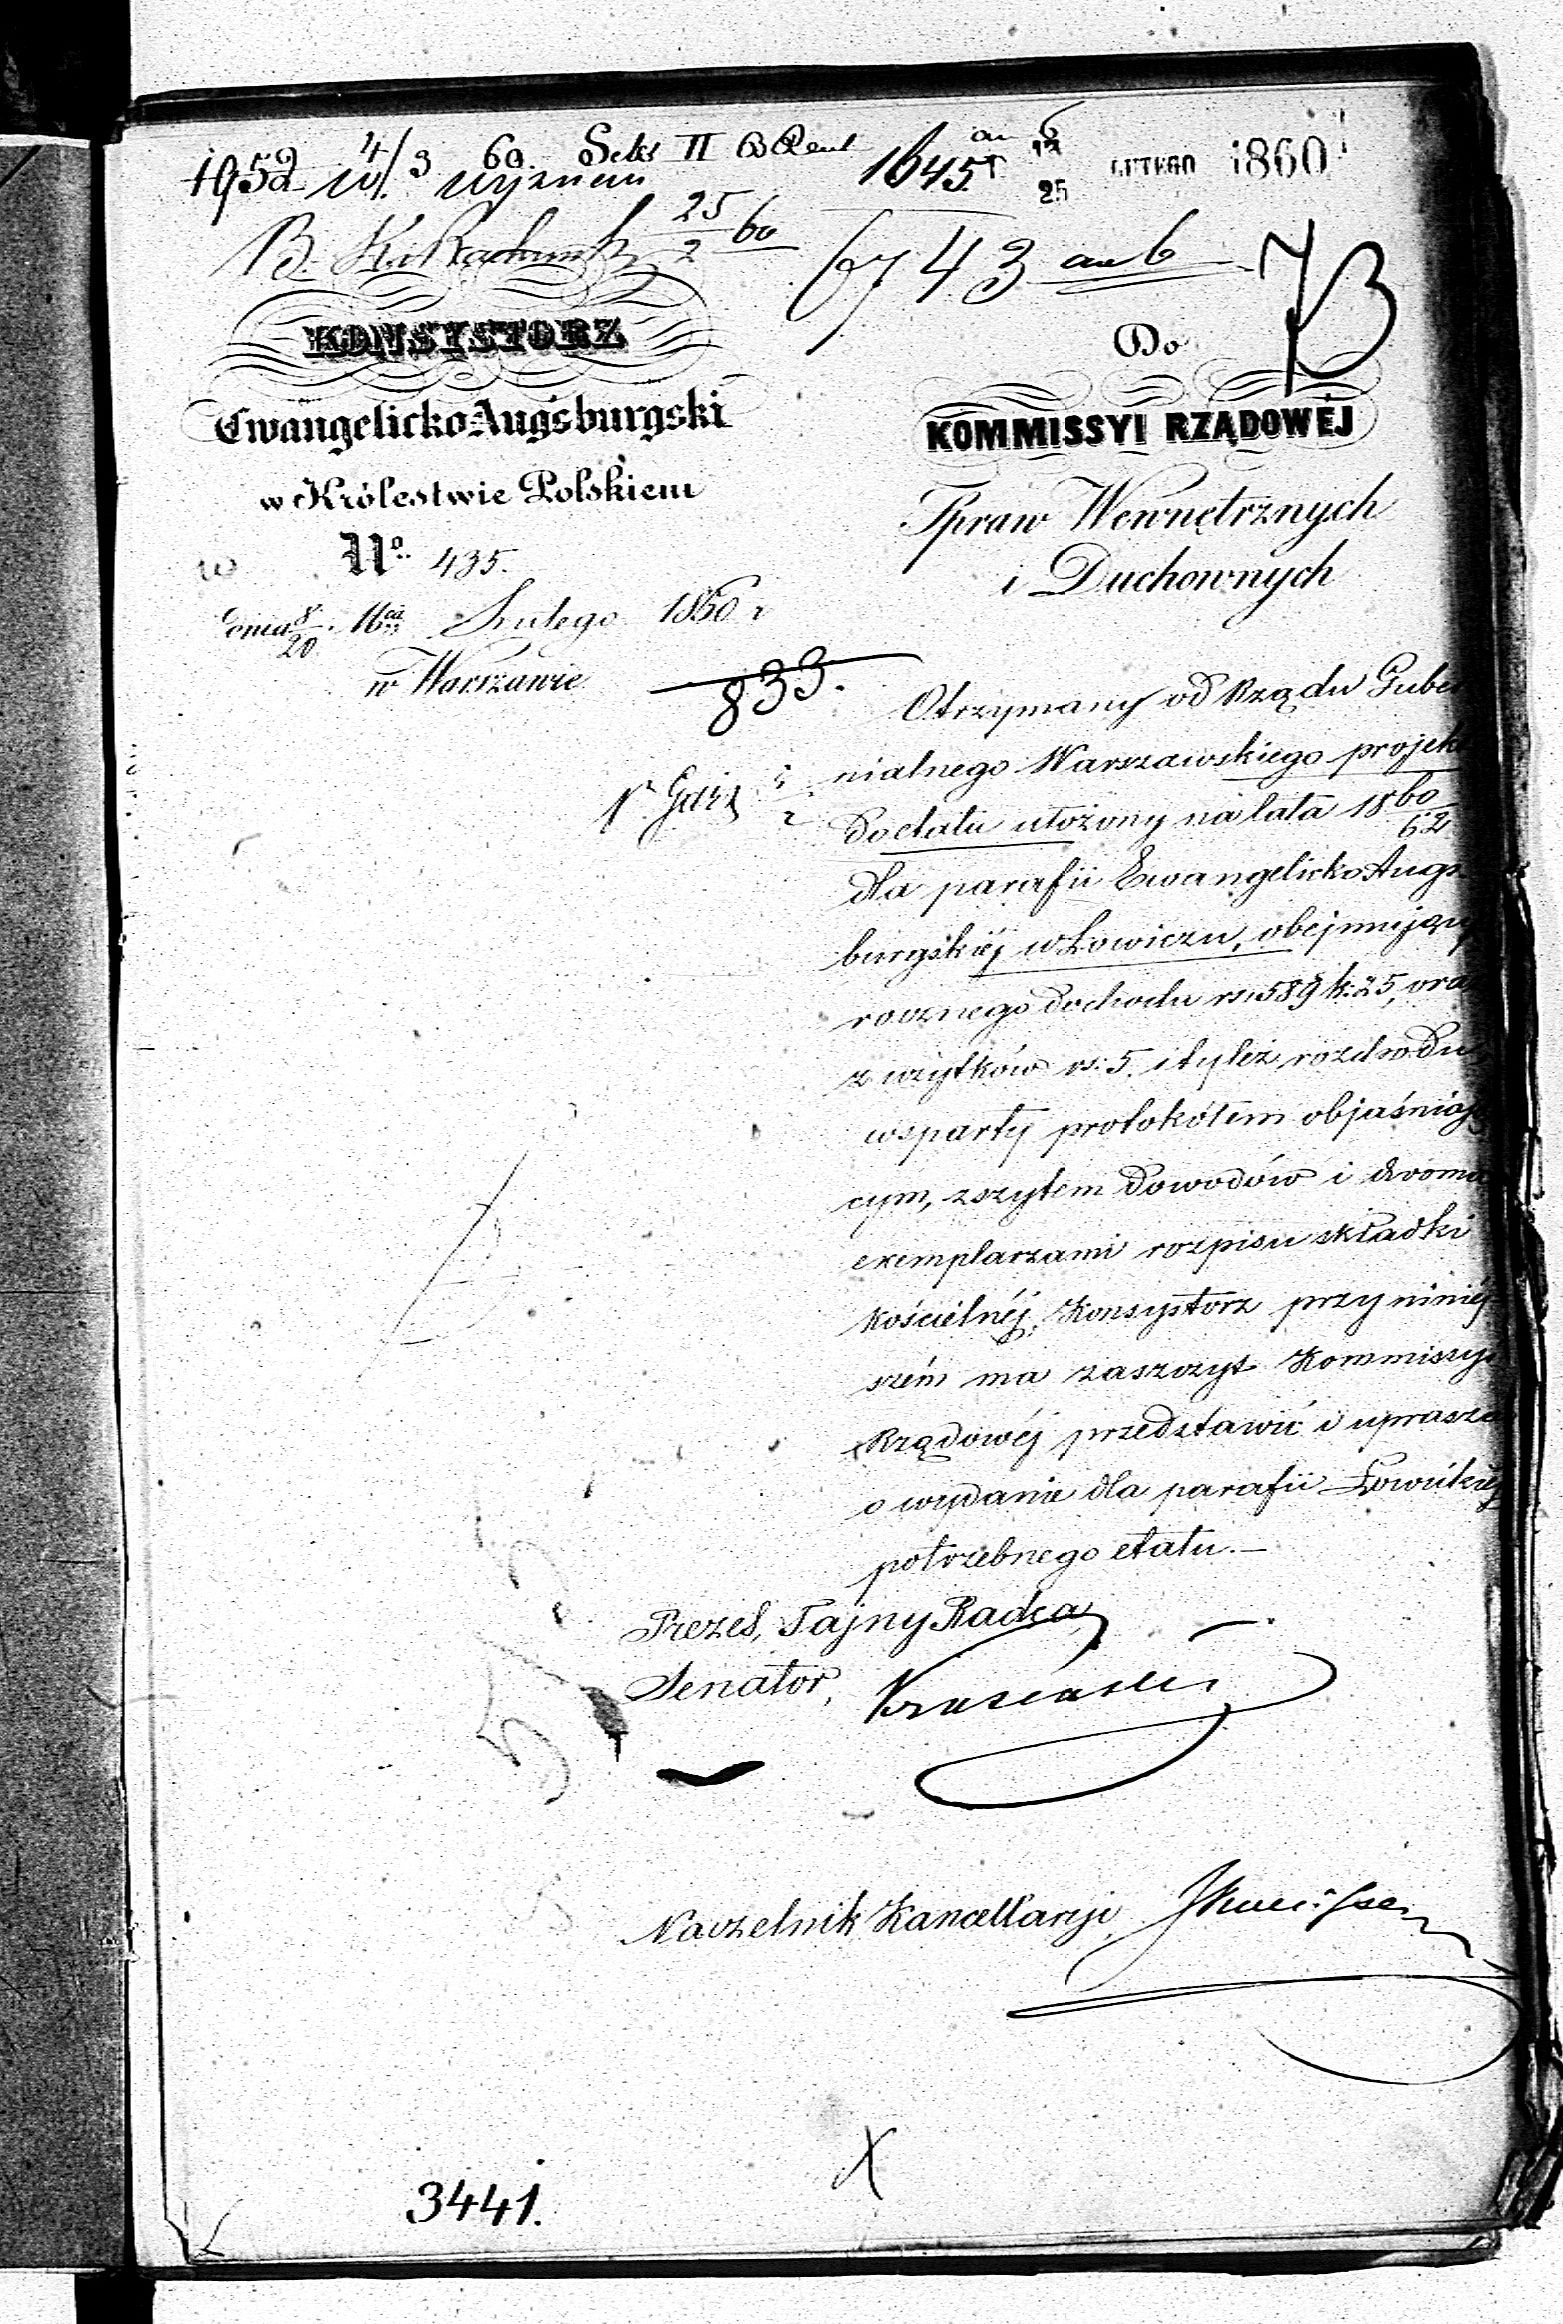 1952 4/3 60. Sek II
w/. wyznań
1645 an 6
13/25 LUTEGO 1860
B. 25/2 60
6743 an 6
KONSYSTORZ
Ewangelicko Augsburgski
w Królestwie Polskiem
No. 435.
dnia 8/20 Lutego 1860 r
w Warszawie
833.
Do
KOMMISSYI RZĄDOWÉJ
Spraw Wewnętrznych
i Duchownych
Otrzymany od Rządu Guber
nialnego Warszawskiego projekt
do etatu ułożony na lata 1860/62
dla parafii Ewangelicko Augs
burgskiéj w Łowiczu, obejmujący
rocznego dochodu rs: 589 k: 25, oraz
z użytków rs: 5. i tyleż rozchodu
wsparty protokółem objaśniają
cym, zszytem dowodów i dwoma
exemplarzami rozpisu składki
kościelnéj, Konsystorz przy niniéj
szém ma zaszczyt Kommissyi
Rządowéj przedstawić i uprasza
o wydanie dla parafii Łowickiéj
potrzebnego etatu.—
Prezes, Tajny Radca,
Senator,
Naczelnik Kancellaryi
3441.